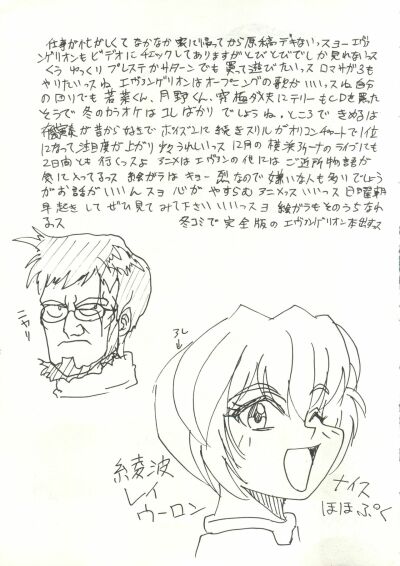 仕事が忙がしくてなかなか家に帰ってから原稿デキないっスヨーエヴァ
ンゲリオンもビデオにチェックしてありますがとびとびでしか見れないっス
くうゆっくりプレステかサターンでも買って遊びたいっスロマサガ3も
やりたいっスねエヴァンゲリオンはオープニングの歌がいいっスね自分
の回りでも若菜くん、月野くん、究極 夫にテリーもCDを買た
そうで冬のカラオケはコレばかりでしょうね、ところできめるは
が昔から好きでホイズ2に続きスリルがオリコンチャートで1位
になって注目度が上がりうれしいっス12月の横浜アリーナのライブにも
2日間とも行くっスよアニメはエヴァンの他にはご近所物語が
気に入ってるっス お絵ガラはキョー烈なので嫌いな人も多いでしょう
がお話がいいんスョ心がやすらむアニメっスいいっス日曜朝
早起きしてぜひ見てみて下さいいいっスヨ絵ガラもそのうちなれ
るっス
冬コミで完全版のエヴァンゲリオン本出すっス
ニヤリ
アレ
綾波
レイ
ウーロン
ナイス
ほほぷく